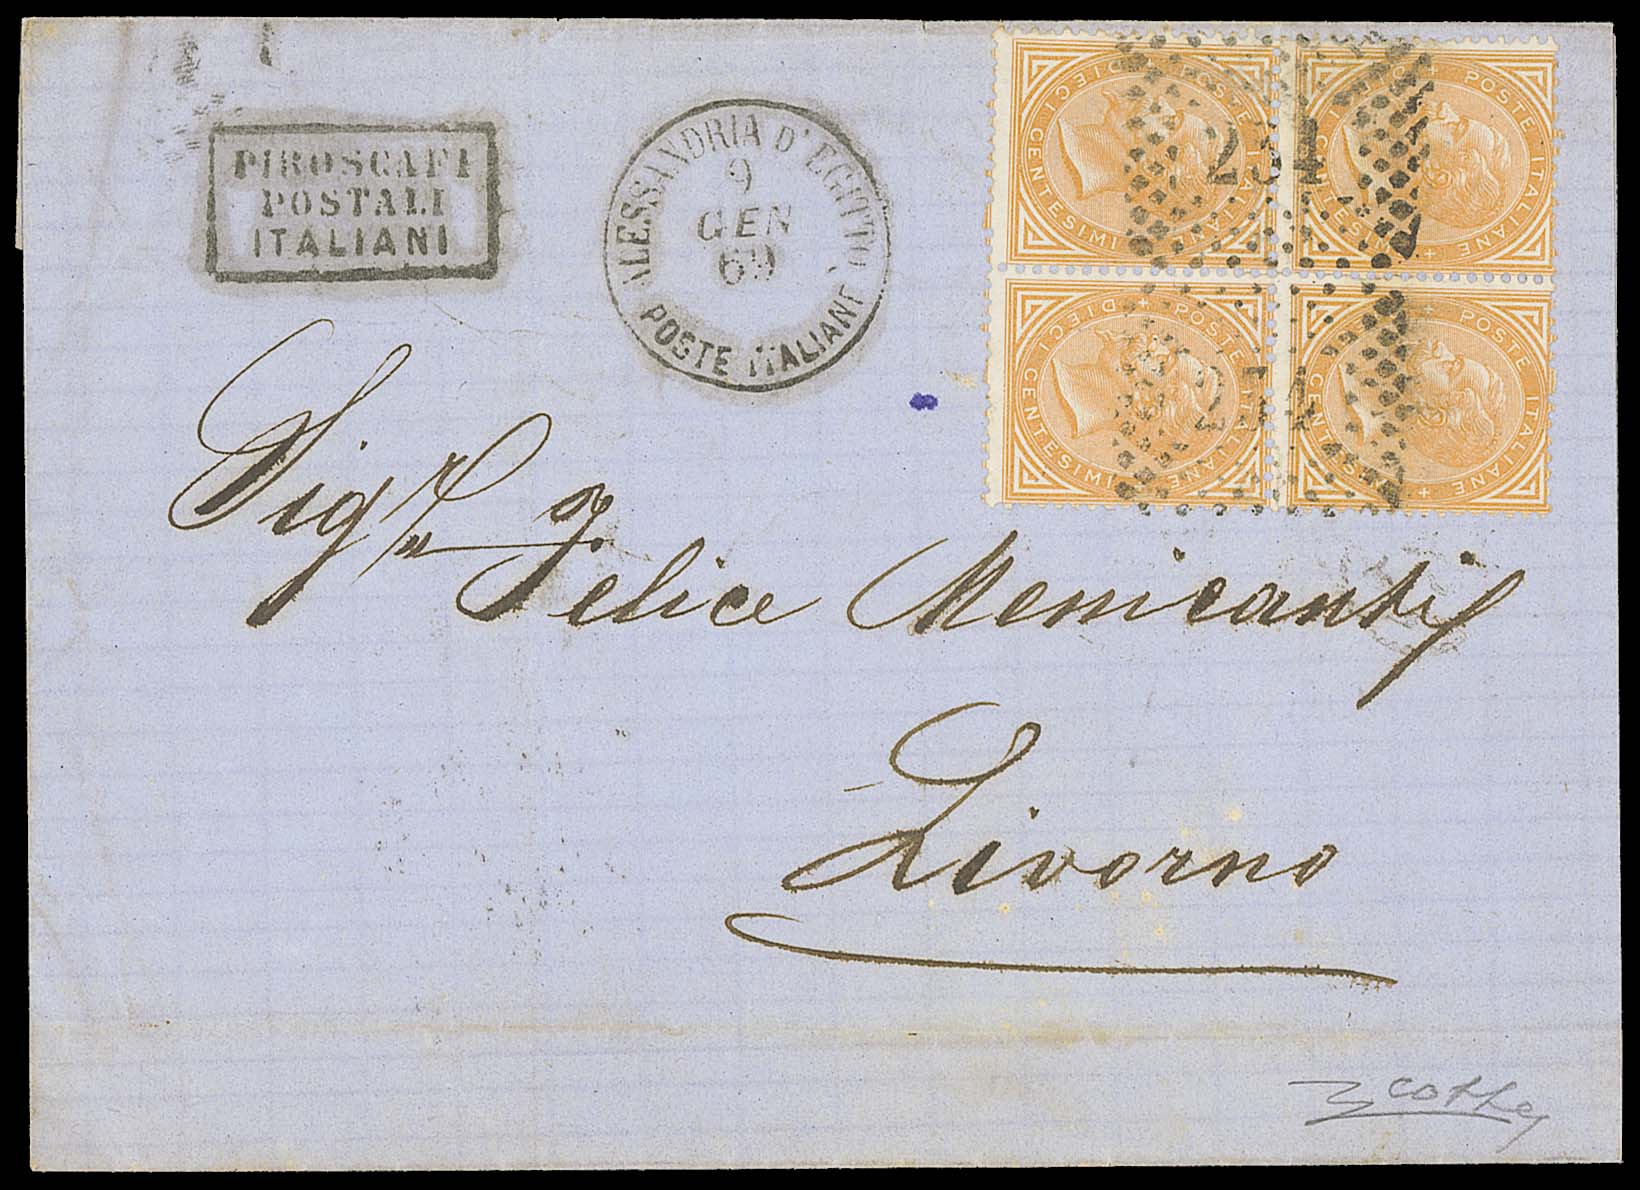 PIROSCAFI
POSTALI
ITALIANI
ALESSANDRIA D'EGITTO
9
GEN
69
POSTE ITALIANE
POSTE ITALIANE
CENTESIMI DIECI
234
POSTE ITALIANE
CENTESIMI DIECI
POSTE ITALIANE
CENTESIMI DIECI
234
POSTE ITALIANE
CENTESIMI
Sig.r
Felice Menicanti
Livorno